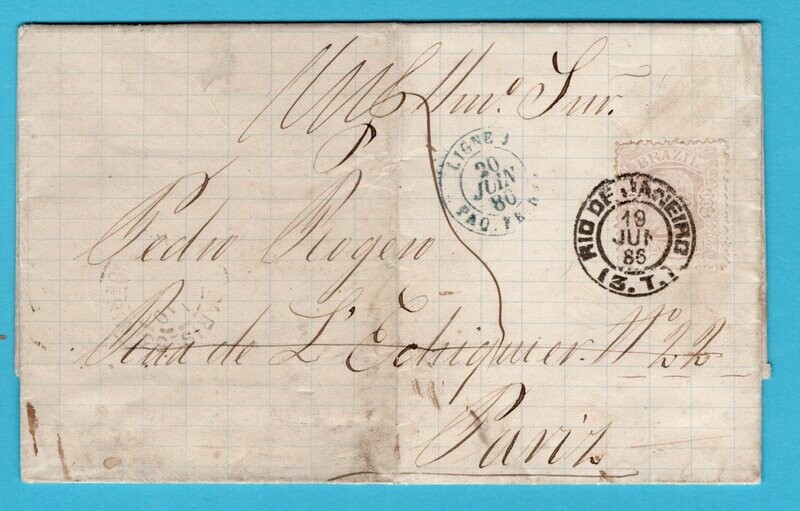 Illmº Snr.
Pedro Rogero
Rua de L'Echiquier Nº 22
Pariz
LIGNE J
20
JUIN
86
PAQ. FR.
BRAZIL
RIO DE JANEIRO
19
JUN
86
(3.T.)
PARIS